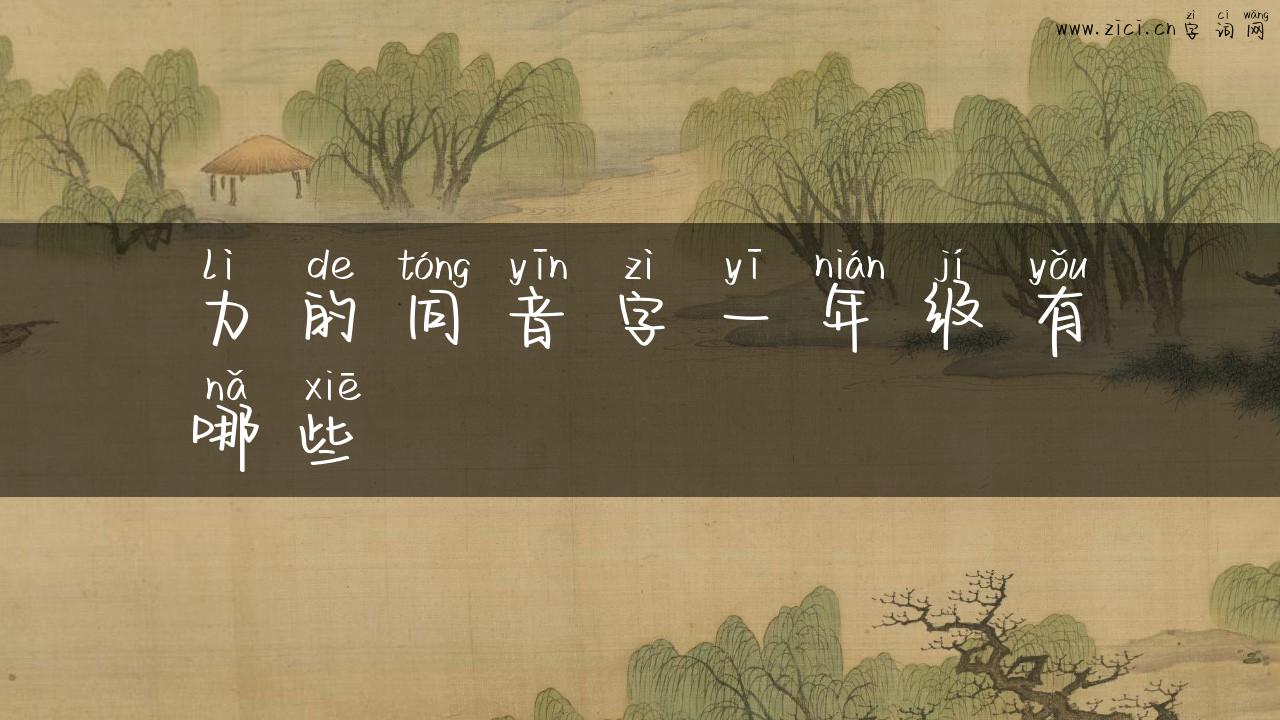 zì cí wǎng
www.zici.cn 字词网
lì de tóng yīn zì yī nián jí yǒu
力的同音字一年级有
nǎ xiē
哪些